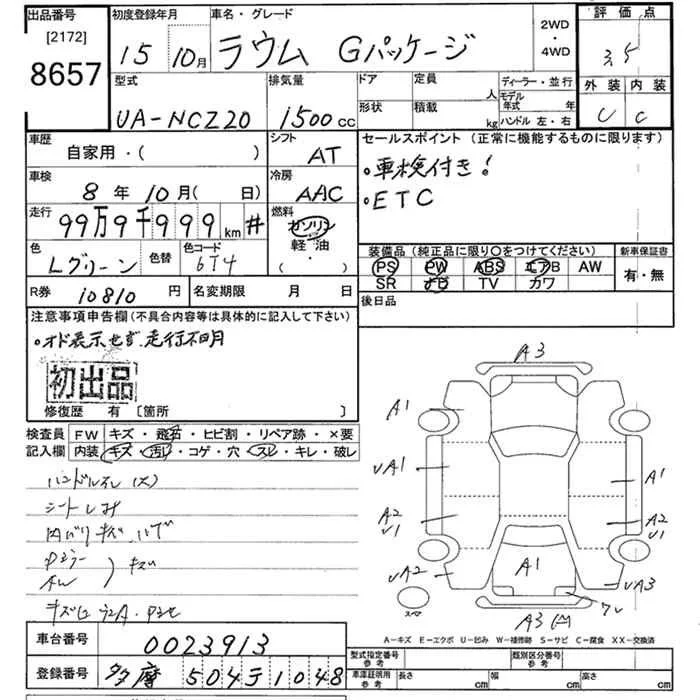 出品番号
[2172]
8657
初度登録年月
15 10月
車名・グレード
ラウム Gパッケージ
2WD
・
4WD
評価点
3.5
外装 内装
C C
型式
UA-NCZ20
排気量
1500 cc
ドア 定員 人
形状 積載 kg
ディーラー・並行
モデル年式 年
ハンドル 左・右
車歴
自家用・( )
シフト
AT
車検
8年10月( 日)
冷房
AAC
走行
99万9千999km #
燃料
ガソリン
軽油
( ・ )
色
Lグリーン
色替
色コード
6T4
R券 10810 円
名変期限 月 日
セールスポイント(正常に機能するものに限ります)
・車検付き!
・ETC
装備品(純正品に限り○をつけてください)
PS PW ABS エアB AW
SR ナビ TV カワ
新車保証書
有・無
後日品
注意事項申告欄(不具合内容等は具体的に記入して下さい)
・オド表示せず.走行不明
初出品
修復歴 有 〔箇所 〕
検査員記入欄
FW キズ・飛石・ヒビ割・リペア跡・×要
内装 キズ・汚レ・コゲ・穴・スレ・キレ・破レ
シートしみ
キズ
A3
A1
UA1
A2
U1
UA2
A1
A2
U1
UA3
A1
A3
スペア
A-キズ E-エクボ U-凹み W-補修跡 S-サビ C-腐食 XX-交換済
車台番号 0023913
登録番号 多摩 504テ1048
型式指定番号
参考
類別区分番号
参考
車庫証明用
参考
長さ cm
幅 cm
高さ cm